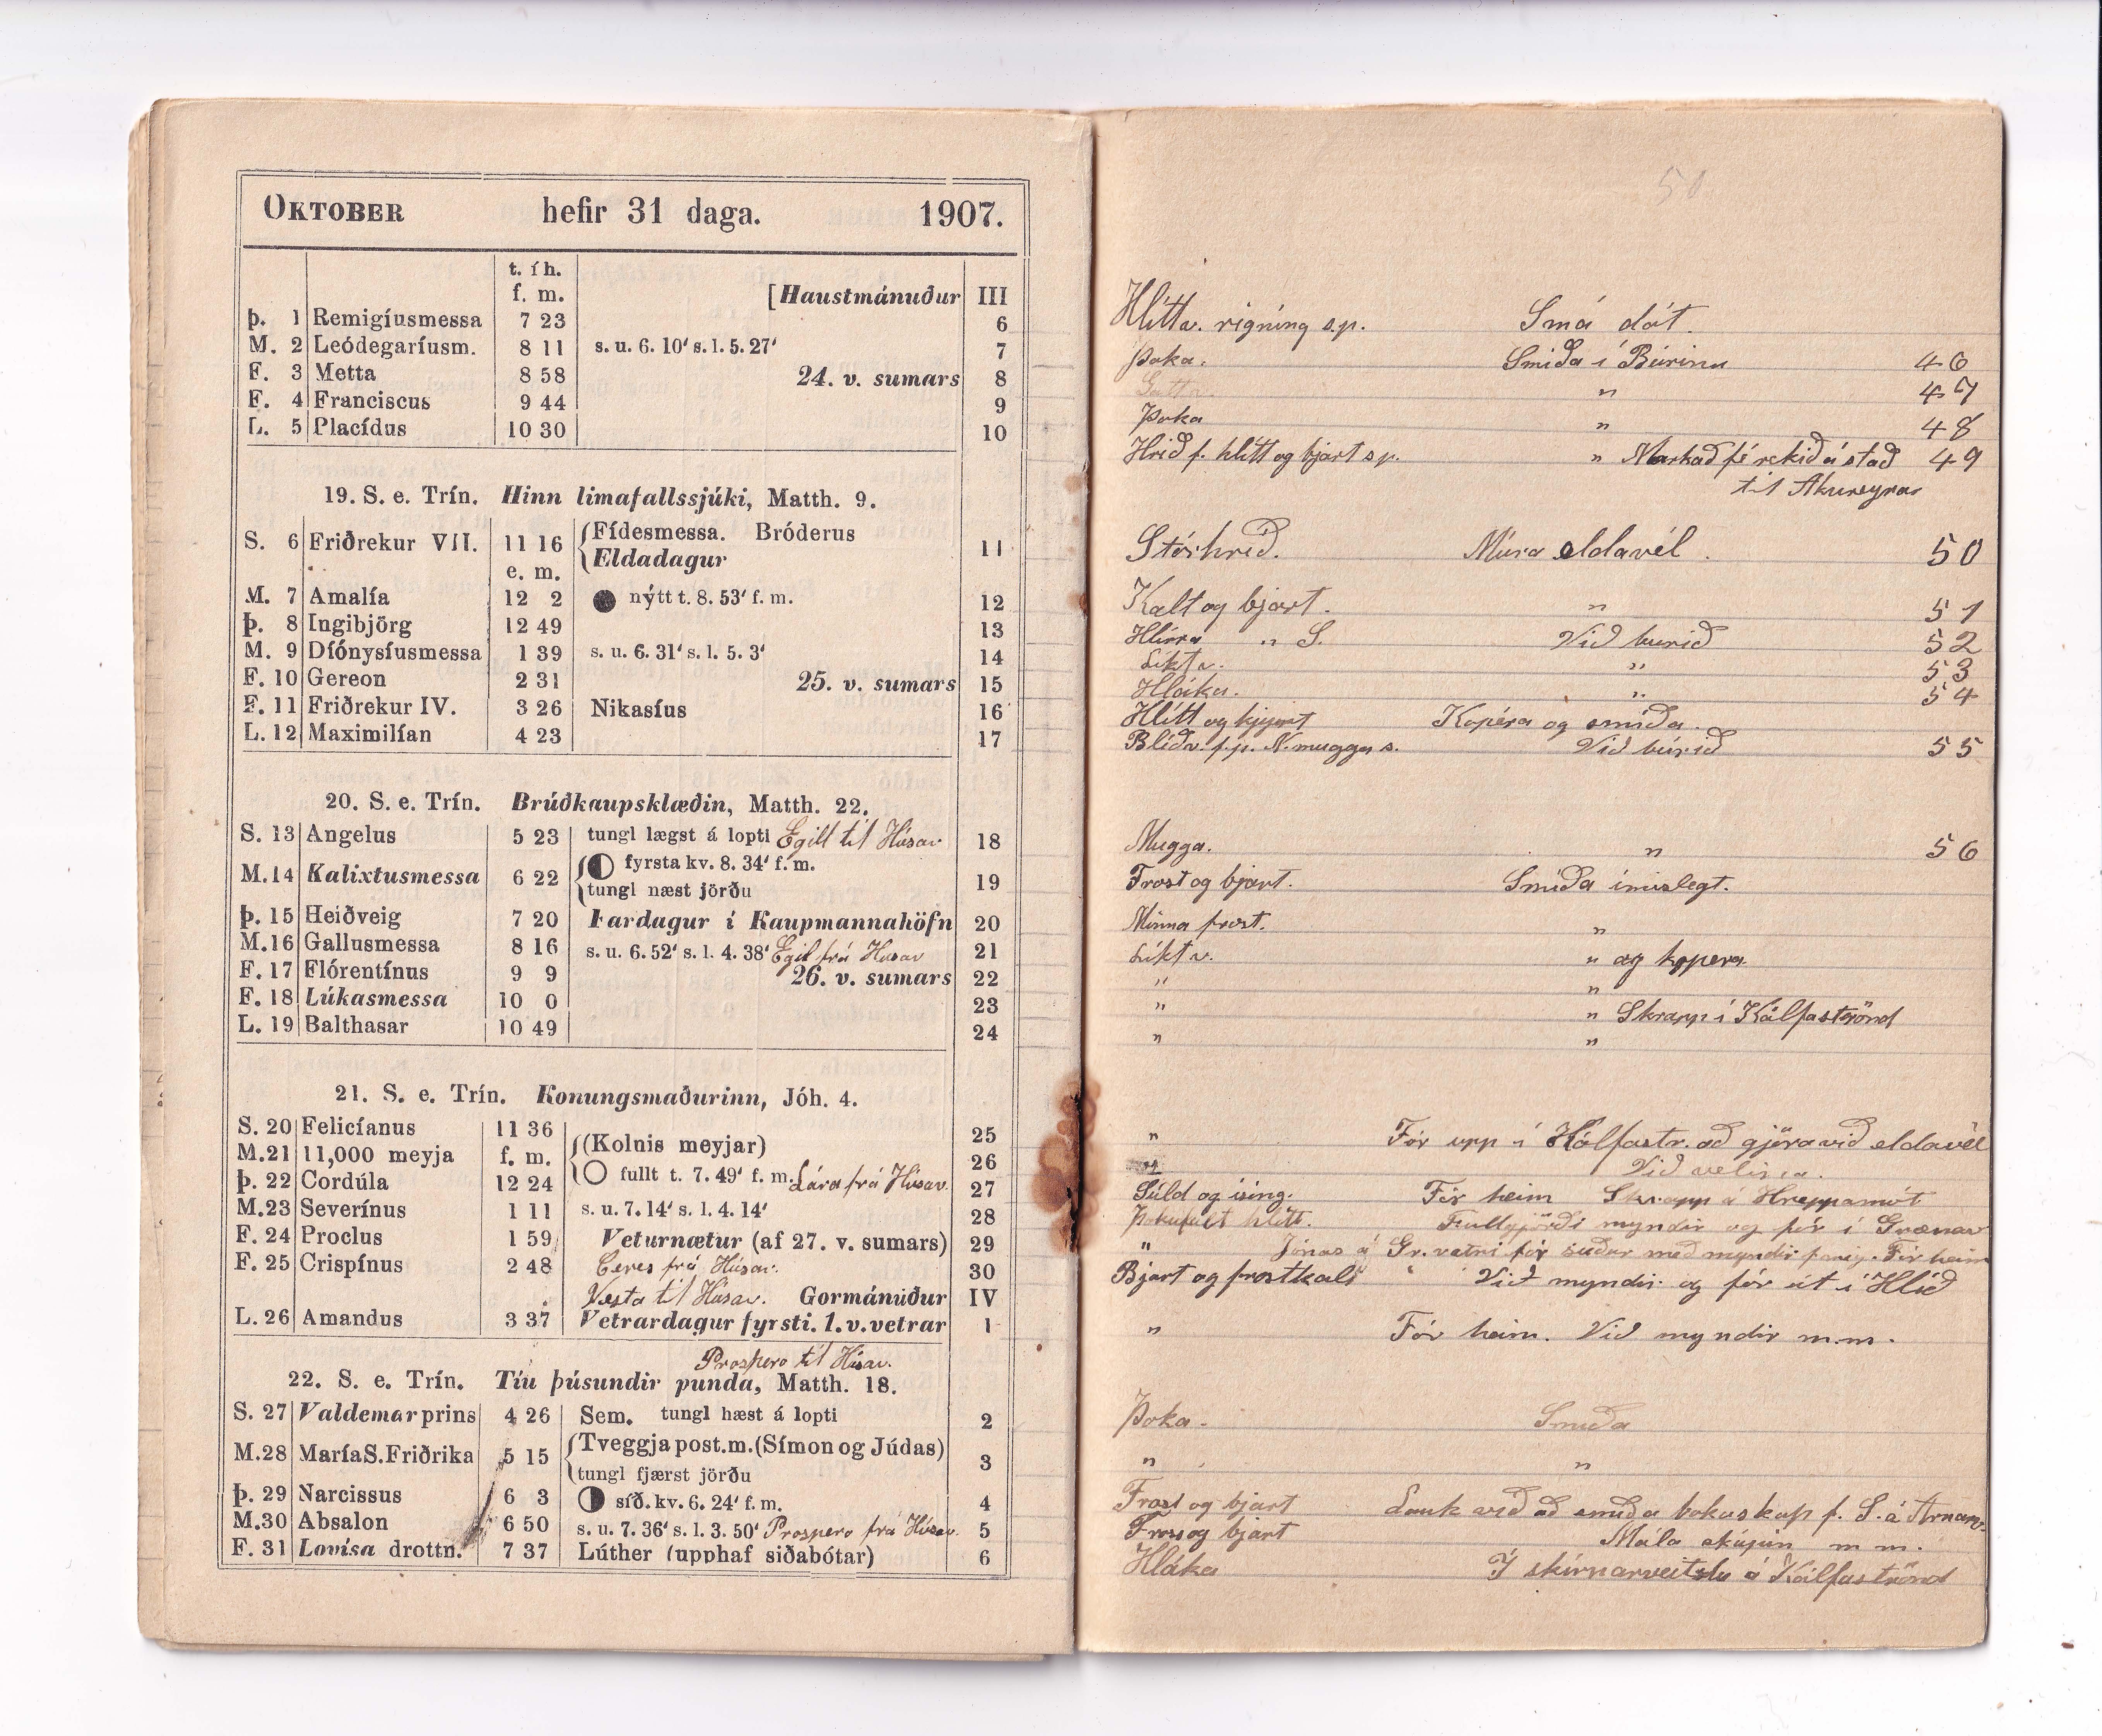 OKTOBER hefir 31 daga. 1907.
t. í h.
f. m. [Haustmánuður III
Þ. 1 Remigíusmessa 7 23 6
M. 2 Leódegaríusm. 8 11 s. u. 6. 10' s. l. 5. 27' 7
F. 3 Metta 8 58 24. v. sumars 8
F. 4 Franciscus 9 44 9
L. 5 Placídus 10 30 10
19. S. e. Trín. Hinn limafallssjúki, Matth. 9.
S. 6 Friðrekur VII. 11 16 Fídesmessa. Bróderus 11
e. m. Eldadagur
M. 7 Amalía 12 2 nýtt t. 8. 53' f. m. 12
Þ. 8 Ingibjörg 12 49 13
M. 9 Díónysíusmessa 1 39 s. u. 6. 31' s. l. 5. 3' 14
F. 10 Gereon 2 31 25. v. sumars 15
F. 11 Friðrekur IV. 3 26 Nikasíus 16
L. 12 Maximilían 4 23 17
20. S. e. Trín. Brúðkaupsklæðin, Matth. 22.
S. 13 Angelus 5 23 tungl lægst á lopti Egill til Húsav 18
M. 14 Kalixtusmessa 6 22 fyrsta kv. 8. 34' f. m. 19
tungl næst jörðu
Þ. 15 Heiðveig 7 20 Fardagur í Kaupmannahöfn 20
M. 16 Gallusmessa 8 16 s. u. 6. 52' s. l. 4. 38' Egil frá Húsav 21
F. 17 Flórentínus 9 9 26. v. sumars 22
F. 18 Lúkasmessa 10 0 23
L. 19 Balthasar 10 49 24
21. S. e. Trín. Konungsmaðurinn, Jóh. 4.
S. 20 Felicíanus 11 36 (Kolnis meyjar) 25
M. 21 11,000 meyja f. m. 26
Þ. 22 Cordúla 12 24 fullt t. 7. 49' f. m. Lára frá Húsav. 27
M. 23 Severínus 1 11 s. u. 7. 14' s. l. 4. 14' 28
F. 24 Proclus 1 59 Veturnætur (af 27. v. sumars) 29
F. 25 Crispínus 2 48 Ceres frá Húsav. 30
Vesta til Húsav. Gormánuður IV
L. 26 Amandus 3 37 Vetrardagur fyrsti. 1. v. vetrar 1
Prospero til Húsav.
22. S. e. Trín. Tíu þúsundir punda, Matth. 18.
S. 27 Valdemar prins 4 26 Sem. tungl hæst á lopti 2
M. 28 María S. Friðrika 5 15 Tveggja post. m. (Símon og Júdas) 3
tungl fjærst jörðu
Þ. 29 Narcissus 6 3 síð. kv. 6. 24' f. m. 4
M. 30 Absalon 6 50 s. u. 7. 36' s. l. 3. 50' Prospero frá Húsav. 5
F. 31 Lovísa drottn. 7 37 Lúther (upphaf siðabótar) 6
50
Hlítta. rigning s.p. Smá dót.
Þoka. Smíða í Búrinu 46
" 47
Þoka " 48
Hríð f. hlítt og bjart s.p. " Markaðfé rekið á stað 49
til Akureyrar
Stórhríð. Múra eldavél. 50
Kalt og bjart. " 51
Hlírra " S. Við burið 52
Líkt v. " 53
Hláka. " 54
Hlítt og bjart Kopéra og smíða.
Blíða f.p. N. mugga s. Við búrið 55
Mugga. " 56
Frost og bjart. Smíða ímislegt.
Minna frost. "
Líkt v. " og kopera.
" "
" " Skrapp í Kálfaströnd
" "
" Fór upp í Kálfastr. að gjöra við eldavél
Við velina.
Súld og ísing. Fór heim Skrapp á Hreppamót
Þokufult hlítt. Fullgjörði myndir og fór í Grænav
" Jónas á Gr. vatni fór suður með myndir Fór heim
Bjart og frostkali Við myndir og fór út í Hlíð
" Fór heim. Við myndir m.m.
Þoka. Smíða
" "
Frost og bjart Lauk við að smíða bokaskáp f. S. á Arnarv.
Frost og bjart Mála skápin m m.
Hláka Í skírnarveitslu á Kálfaströnd